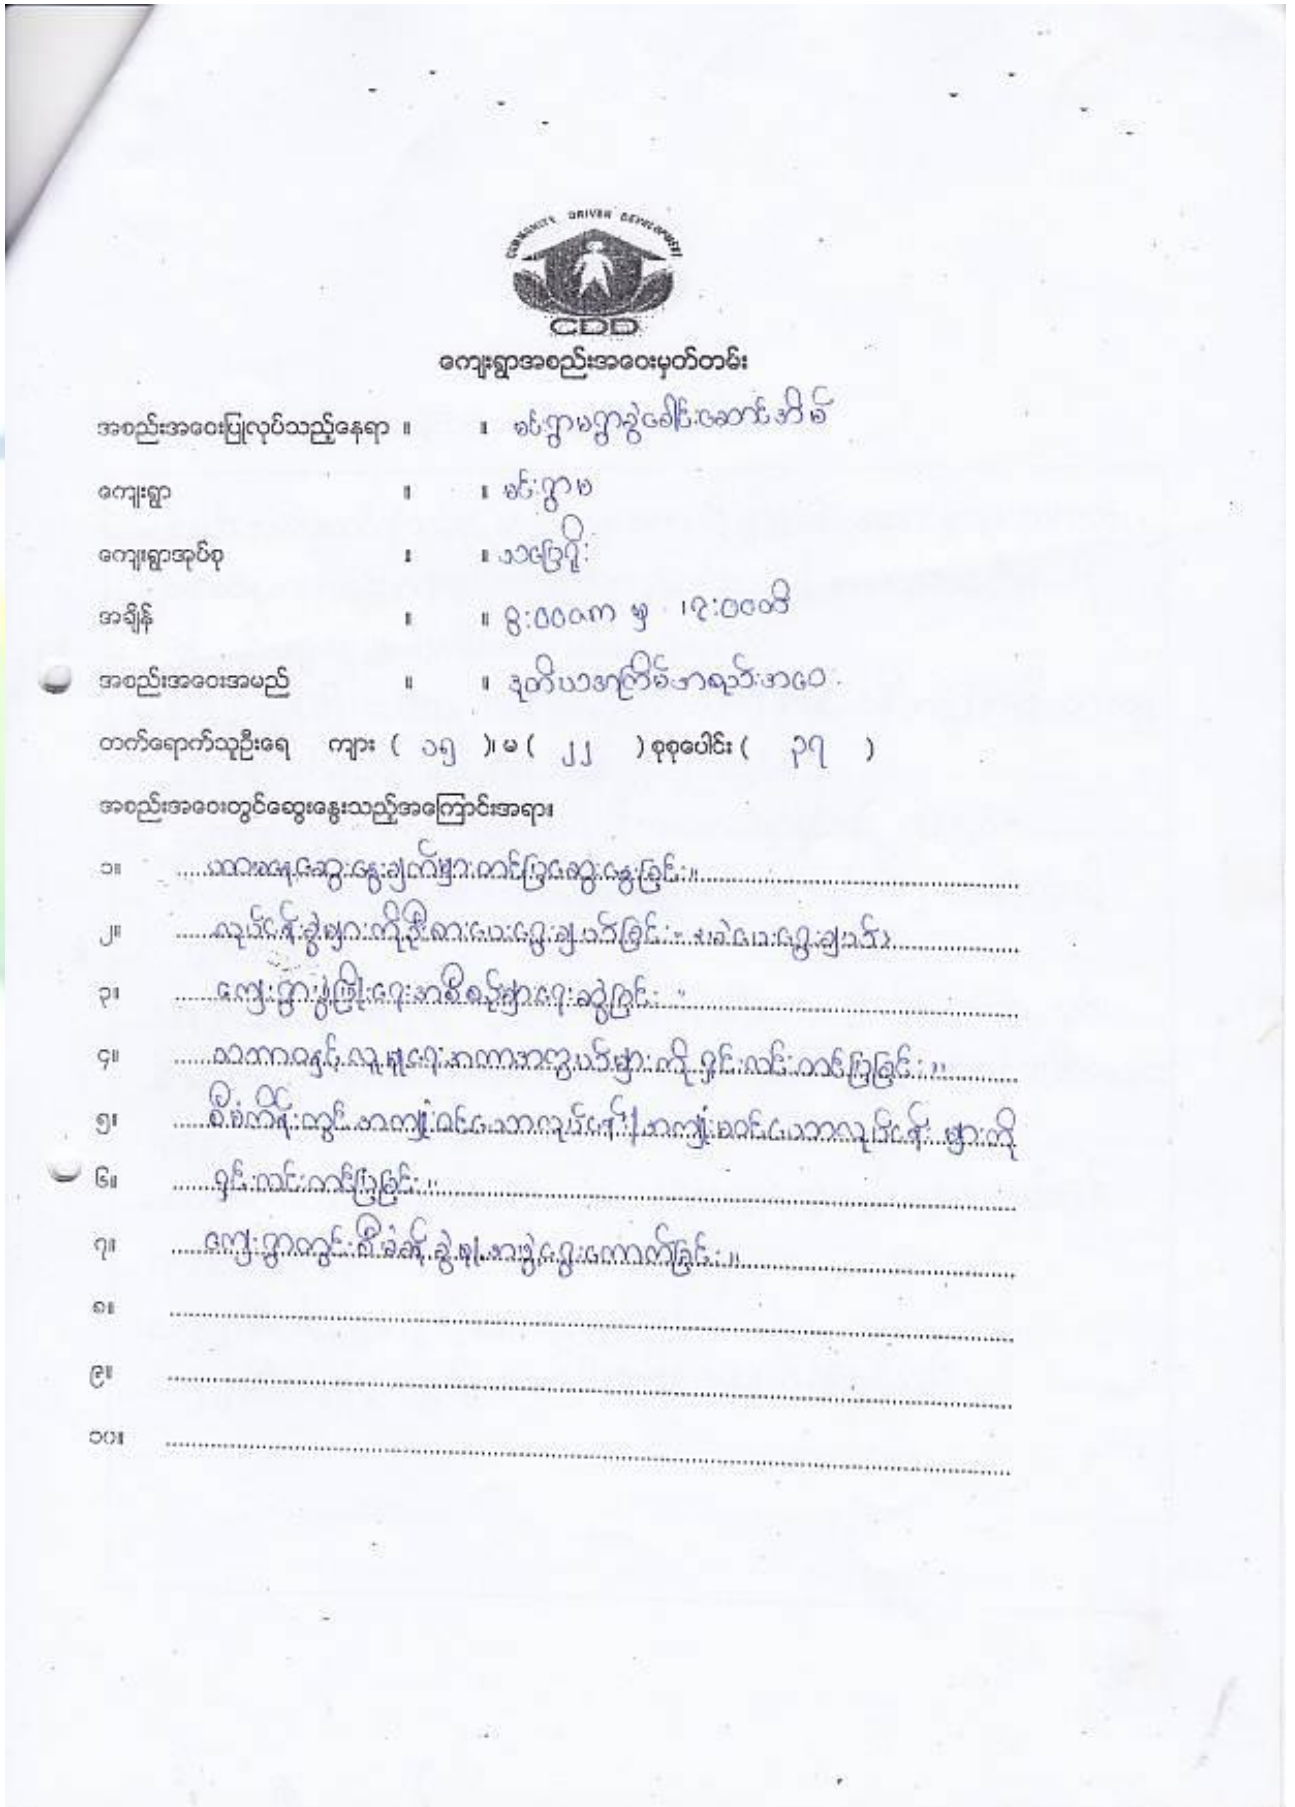 COMMUNITY DRIVEN DEVELOPMENT
CDD
ကျေးရွာအစည်းအဝေးမှတ်တမ်း
အစည်းအဝေးပြုလုပ်သည့်နေရာ ။ ။ မင်းရွာမရွာခွဲခေါင်းဆောင်အိမ်
ကျေးရွာ ။ ။ မင်းရွာမ
ကျေးရွာအုပ်စု ။ ။ သပြေရိုး
အချိန် ။ ။ ၇:၀၀ နာရီ
အစည်းအဝေးအမည် ။ ။ ဒုတိယအကြိမ်အစည်းအဝေး
တက်ရောက်သူဦးရေ ကျား ( ၁၅ )၊ မ ( ၂၂ ) စုစုပေါင်း ( ၃၇ )
အစည်းအဝေးတွင်ဆွေးနွေးသည့်အကြောင်းအရာ။
၁။ ယားမနေ့ဆွေးနွေးချက်များတင်ပြဆွေးနွေးခြင်း။
၂။ လုပ်ငန်းခွဲများကိုဦးစားပေးရွေးချယ်ခြင်း။ (မဲပေးရွေးချယ်)
၃။ ကျေးရွာဖွံ့ဖြိုးရေးအစီစဉ်များရေးဆွဲခြင်း ။
၄။ သဘာဝနှင့်လူမှုရေးအကာအကွယ်များကိုရှင်းလင်းတင်ပြခြင်း။
၅။ စီမံကိန်းတွင်အကျုံးဝင်သောလုပ်ငန်း/အကျုံးမဝင်သောလုပ်ငန်းများကို
၆။ ရှင်းလင်းတင်ပြခြင်း။
၇။ ကျေးရွာတွင်းစီမံခန့်ခွဲမှုအဖွဲ့ရွေးကောက်ခြင်း။
၈။
၉။
၁၀။